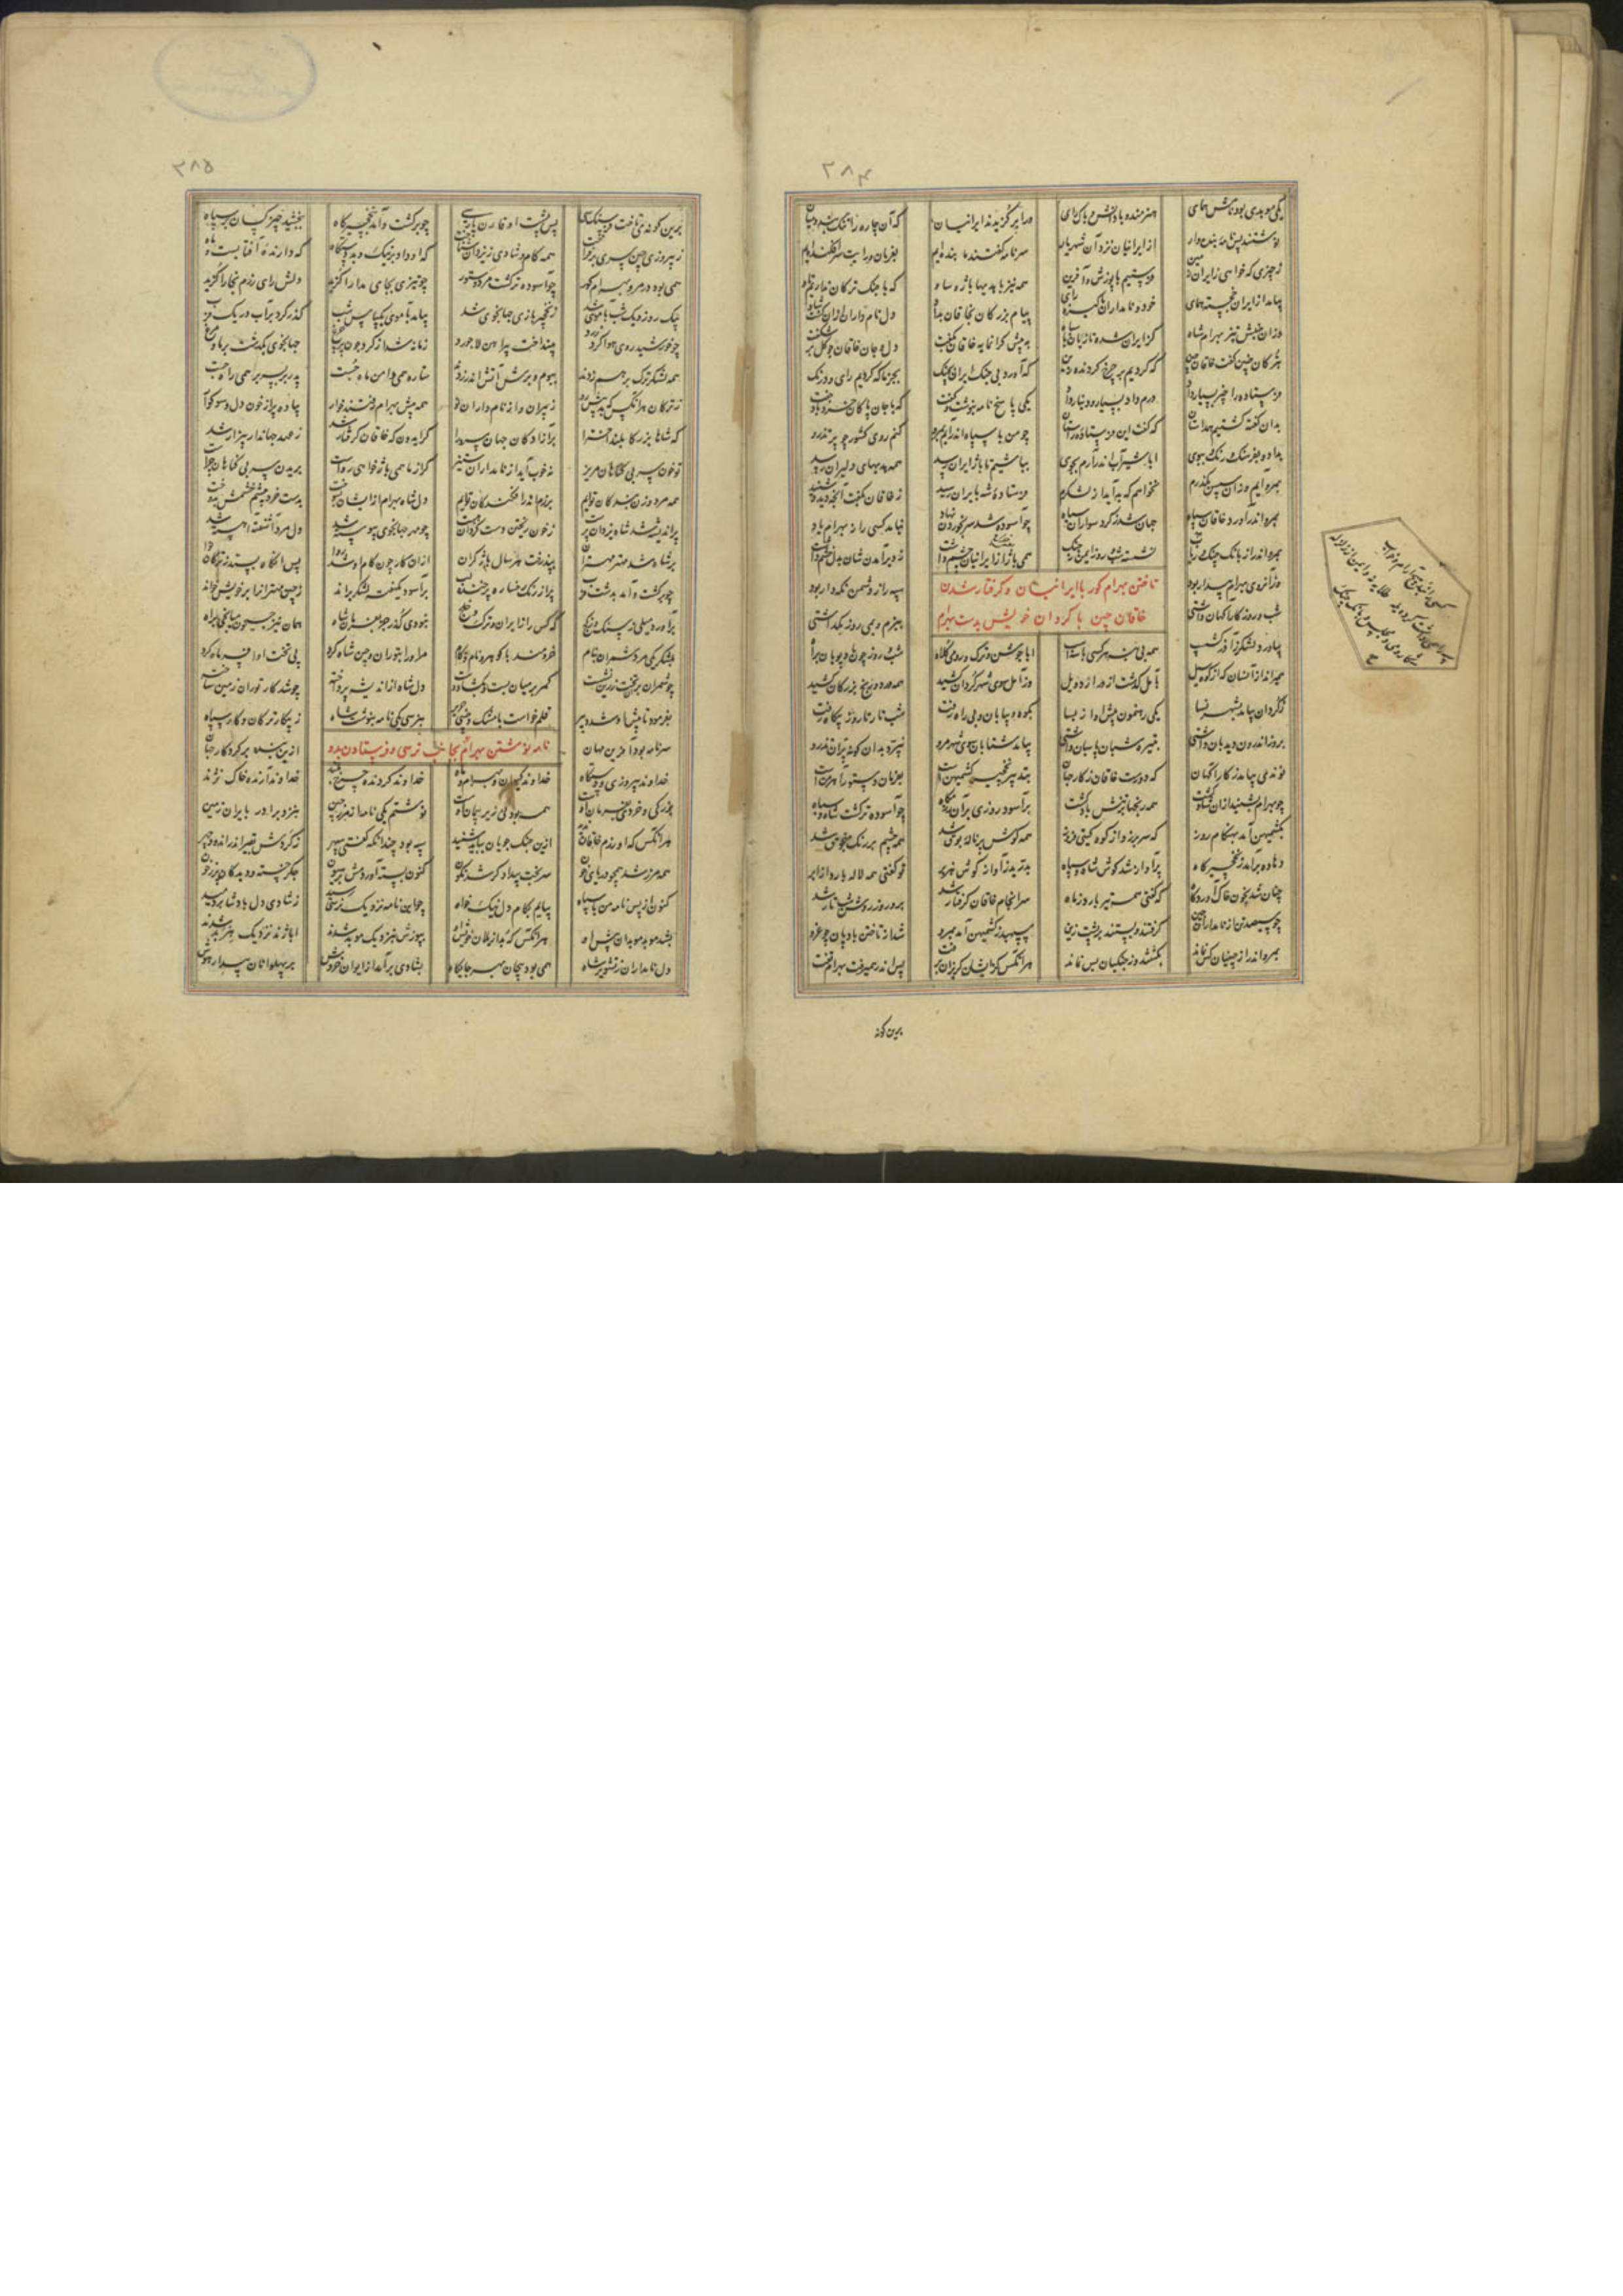 ۲۸۴
یکی موبدی بود نامش همای هنرمند و با دانش و پاک رای ورا برگزیدند ایرانیان که آن چاره را تنک بندد میان
نوشتند پس نامه بنده وار از ایرانیان نزد آن شهریار سر نامه گفتند ما بنده ایم بفرمان و رایت سر افکنده ایم
ز چیزی که خواهی ز ایران زمین فرستیم با پوزش و آفرین همه نیز با هدیها باژ و ساو که با جنک ترکان نداریم تاو
بیامد از ایران خجسته همای خود و نامداران پاکیزه رای پیام بزرگان بخاقان بداد دل نام داران از آن گشت شاد
وزان جنبش تیز بهرام شاه گریزان شده تازیان با سپاه به پیش گرانمایه خاقان بگفت دل و جان خاقان چو گل بر شکفت
بترکان چنین گفت خاقان چین که کردیم بر چرخ گردنده زین که آورد بی جنک ایران بچنک بجز ما که کردیم رای و درنک
فرستاده را چیز بسیار داد درم داد بسیار و دینار داد یکی پاسخ نامه بنوشت و گفت که با جان پاکان خرد باد جفت
بدان گفته گشتیم همداستان که گفت این فرستاده راستان چو من با سپاه اندرآیم بمرو کنم روی کشور چو پر تذرو
بداد و بفرهنگ و رنک و ببوی ابا شیر آب اندر آرم بجوی بباشیم تا باژ ایران رسید همه هدیهای دلیران رسید
بمرو آیم و زان سپس نگذرم نخواهم که بد آید از لشکرم فرستاده شه بایران رسید ز خاقان بگفت آنچه دید و شنید
بمرو اندر آورد خاقان سپاه جهان شد ز گرد سواران سیاه چو آسوده شد سر بخوردن نهاد نیامد کسی را ز بهرام یاد
بمرو اندر از بانک چنک و رباب نشسته شب و روز ایمن ز جنک همی باژ از ایرانیان چشم داشت ز دیر آمدن شان بدل خشم داشت
تاختن بهرام گور با ایرانیان و گرفتار شدن
خاقان چین با گردان خویش بدست بهرام
وز آنروی بهرام بیدار بود سپه راز دشمن نگهدار بود
شب و روز کارآگهان داشتی ببزم و بمی روز نگذاشتی
بیاورد لشکر ز آذرگشسب همه بی بنه هر کسی با سه اسپ ابا جوشن و ترک و رومی کلاه شب و روز چون باد پویان براه
همی راند از آنسان که از کوه سیل بآمل گذشت از در اردبیل وز آمل سوی شهر گرگان کشید همه درد و رنج بزرگان کشید
ز گرگان بیامد بشهر نسا یکی رهنمون پیش او پارسا بکوه و بیابان و بی راه رفت شب تار تا روز بیگاه رفت
بروز اندرون دیده بان داشتی بتیره شبان پاسبان داشتی بیامد شتابان سوی شهر مرو نپرد بدان گونه پران تذرو
نوندی بیامد ز کارآگهان که دورست خاقان ز کار جهان بتدبیر نخجیر کشمیهن است بفرمان دستورش اهرمن است
چو بهرام بشنید از آن شاد گشت همه رنجها بر تنش باد گشت برآسود روزی بر آن رزمگاه چو آسوده تر گشت شاه و سپاه
بکشمیهن آمد بهنگام روز که سر بر زد از کوه گیتی فروز همه گوش پر ناله بوق شد همه چشم پر رنک منجوق شد
دهاده برآمد ز نخجیرگاه پر آواز شد گوش شاه و سپاه بدرید از آواز گوش هژبر تو گفتی همه ژاله بارد ز ابر
چنان شد ز خون خاک آوردگاه که گفتی همی تیر بارد ز ماه سرانجام خاقان گرفتار شد برو روز روشن شب تار شد
چو سیصد تن از نامداران چین گرفتند و بستند بر پشت زین سپهبد ز کشمیهن آمد بمرو شد از تاختن بادپایان چو غرو
بمرو اندر از چینیان کس نماند بکشتند و ز جنگیان بس نماند هر آنکس کز ایشان گریزان برفت پس اندر همیرفت بهرام تفت
برین گونه
۲۸۵
برین گونه می تاخت فرسنک سی پس پشت او قارن پارسی چو برگشت و آمد بنخجیرگاه ببخشید چیز کسان بر سپاه
ز پیروزی چین سرش برفراخت همه کام و شادی ز یزدان شناخت که او داد بر نیک و بد دستگاه که دارنده آفتابست و ماه
همی بود در مرو بهرام گور چو آسوده تر گشت مرد و ستور چو تیزی بجای مدارا گزید دلش رای رزم بخارا گزید
بیک روز و یک شب بآموی شد ز نخجیر و بازی جهانجوی شد بیامد بآموی یکپاس شب گذر کرد بر آب و ریک فرب
چو خورشید روی هوا کرد زرد بینداخت پیراهن لاجورد زمانه شد از گرد چون پر چرغ جهانجوی بگذشت بر مای و مرغ
همه لشکر ترک بر هم زدند ببوم و برش آتش اندر زدند ستاره همی دامن ماه جست پدر بر پسر بر همی راه جست
ز ترکان هر آنکس که بد پیش رو ز پیران و از نام داران نو همه پیش بهرام رفتند خوار پیاده پر از خون دل و سوگوار
که شاها بزرگا بلند اخترا بر آزادگان جهان سرورا گر ایدون که خاقان گرفتار شد ز عهد جهاندار بیزار شد
تو خون سر بی گناهان مریز نه خوب آید از نامداران ستیز گر از ما همی باژ خواهی رواست بریدن سر بی گناهان چراست
همه مرد و زن بندگان توایم برزم اندر افکندگان توایم دل شاه بهرام از ایشان بسوخت بدست خرد چشم خشمش بدوخت
پر اندیشه شد شاه یزدان پرست ز خون ریختن دست گردان ببست چو مهر جهانجوی پیوسته شد دل مرد آشفته آهسته شد
بر شاه شد مهتر مهتران بپذرفت هر سال باژ گران ازان کار چون کام او شد روا پس آنگاه بستد ز ترکان نوا
چو برگشت و آمد بدشت فرب پر از رنک رخساره پر خنده لب برآسود یکهفته لشکر براند ز چین مهتران را بر خویش خواند
برآورد میلی ز سنک و ز گچ که کس را ز ایران و ترک و خلج نبودی گذر جز بفرمان شاه همان نیز جیحون میانجی براه
بلشکر یکی مرد شمر بنام خردمند با گوهر و نام و کام مر او را بتوران زمین شاه کرد پی تخت او افسر ماه کرد
چو شمر بر تخت زرین نشست کمر بر میان بست و بگشاد دست دل شاه از اندیشه پرداخته چو شد کار توران زمین ساخته
بفرمود تا پیش او شد دبیر قلم خواست با مشک و چینی حریر بنرسی یکی نامه بنوشت شاه ز پیکار ترکان و کار سپاه
نامه نوشتن بهرام بجانب نرسی و فرستادن بدو
سر نامه بود آفرین مهان ازین بنده بر کردگار جهان
خداوند پیروزی و دستگاه خداوند کیوان و بهرام و ماه خداوند گردنده چرخ بلند خداوند آرنده خاک نژند
بزرگی و خردی بفرمان اوست همه بودنی زیر پیمان اوست نوشتم یکی نامه از مرز چین بنزد برادر بایران زمین
هر آنکس که او رزم خاقان ندید ازین جنک جویان بباید شنید سپه بود چندانکه گفتی سپهر ز گردش بقیر اندر اندود چهر
همه مرز شد همچو دریای خون سر بخت بیدادگر شد نگون کنون بسته آوردمش بر هیون جگر خسته و دیدگان پر ز خون
کنون از پس نامه من با سپاه بیایم بکام دل نیک خواه چو این نامه نزدیک نرسی رسید ز شادی دل پادشا بردمید
بشد موبد موبدان پیش اوی هر آنکس که بد از یلان جنگجوی بپوزش بنزدیک موبد شدند ابا ژند نزدیک هیربد شدند
دل نامداران ز تشویر شاه همی بود پیچان بهر جایگاه بشادی برآمد از ایوان خروش بر پهلوانان بیدار هوش